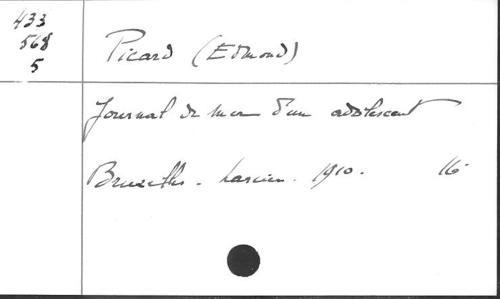 433
568
5
Picard (Edmond)
Journal de mer d'un adolescent
Bruxelles - Larcier. 1910. 16